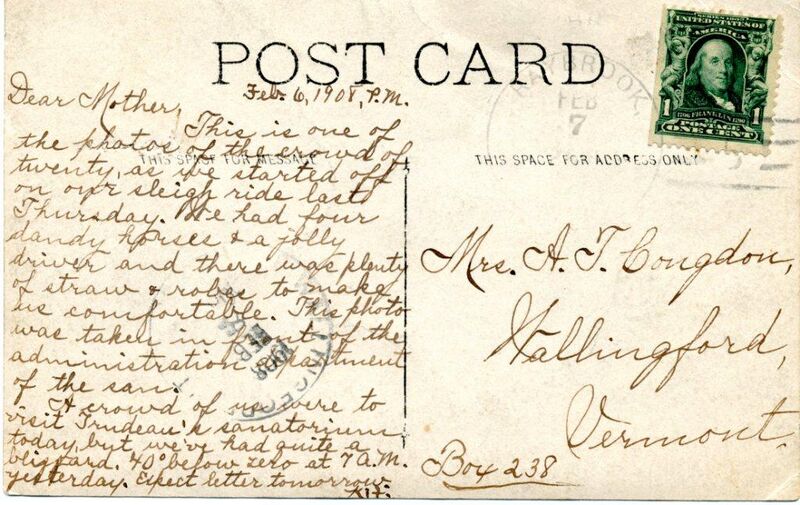 POST CARD
Feb. 6, 1908, P.M.
Dear Mother,
This is one of
the photos of the crowd of
THIS SPACE FOR MESSAGE
twenty, as we started off
on our sleigh ride last
Thursday. We had four
dandy horses & a jolly
driver and there was plenty
of straw & robes to make
us comfortable. This photo
was taken in front of the
administration apartment
of the san.
A crowd of us were to
visit Trudeau's sanatorium
today, but we've had quite a
blizzard. 40° below zero at 7 A.M.
yesterday. Expect letter tomorrow
THIS SPACE FOR ADDRESS ONLY
Mrs. A. T. Congdon,
Wallingford,
Vermont.
Box 238
FEB
7
SERIES 1902
UNITED STATES OF
AMERICA
1706 FRANKLIN 1790
1 1
POSTAGE
ONE CENT
1908